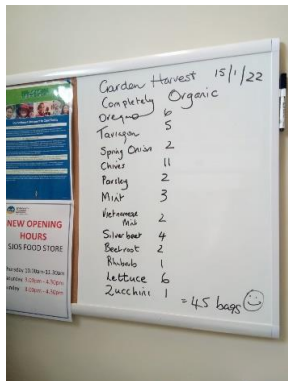 Garden Harvest 15/1/22
Completely Organic
Oregno 6
Tarragon 5
Spring Onion 2
Chives 11
Parsley 2
Mint 3
Vietnamese
Mint 2
Silverbeet 4
Beetroot 2
Rhubarb 1
Lettuce 6
Zucchini 1
= 45 bags
NEW OPENING
HOURS
SJOS FOOD STORE